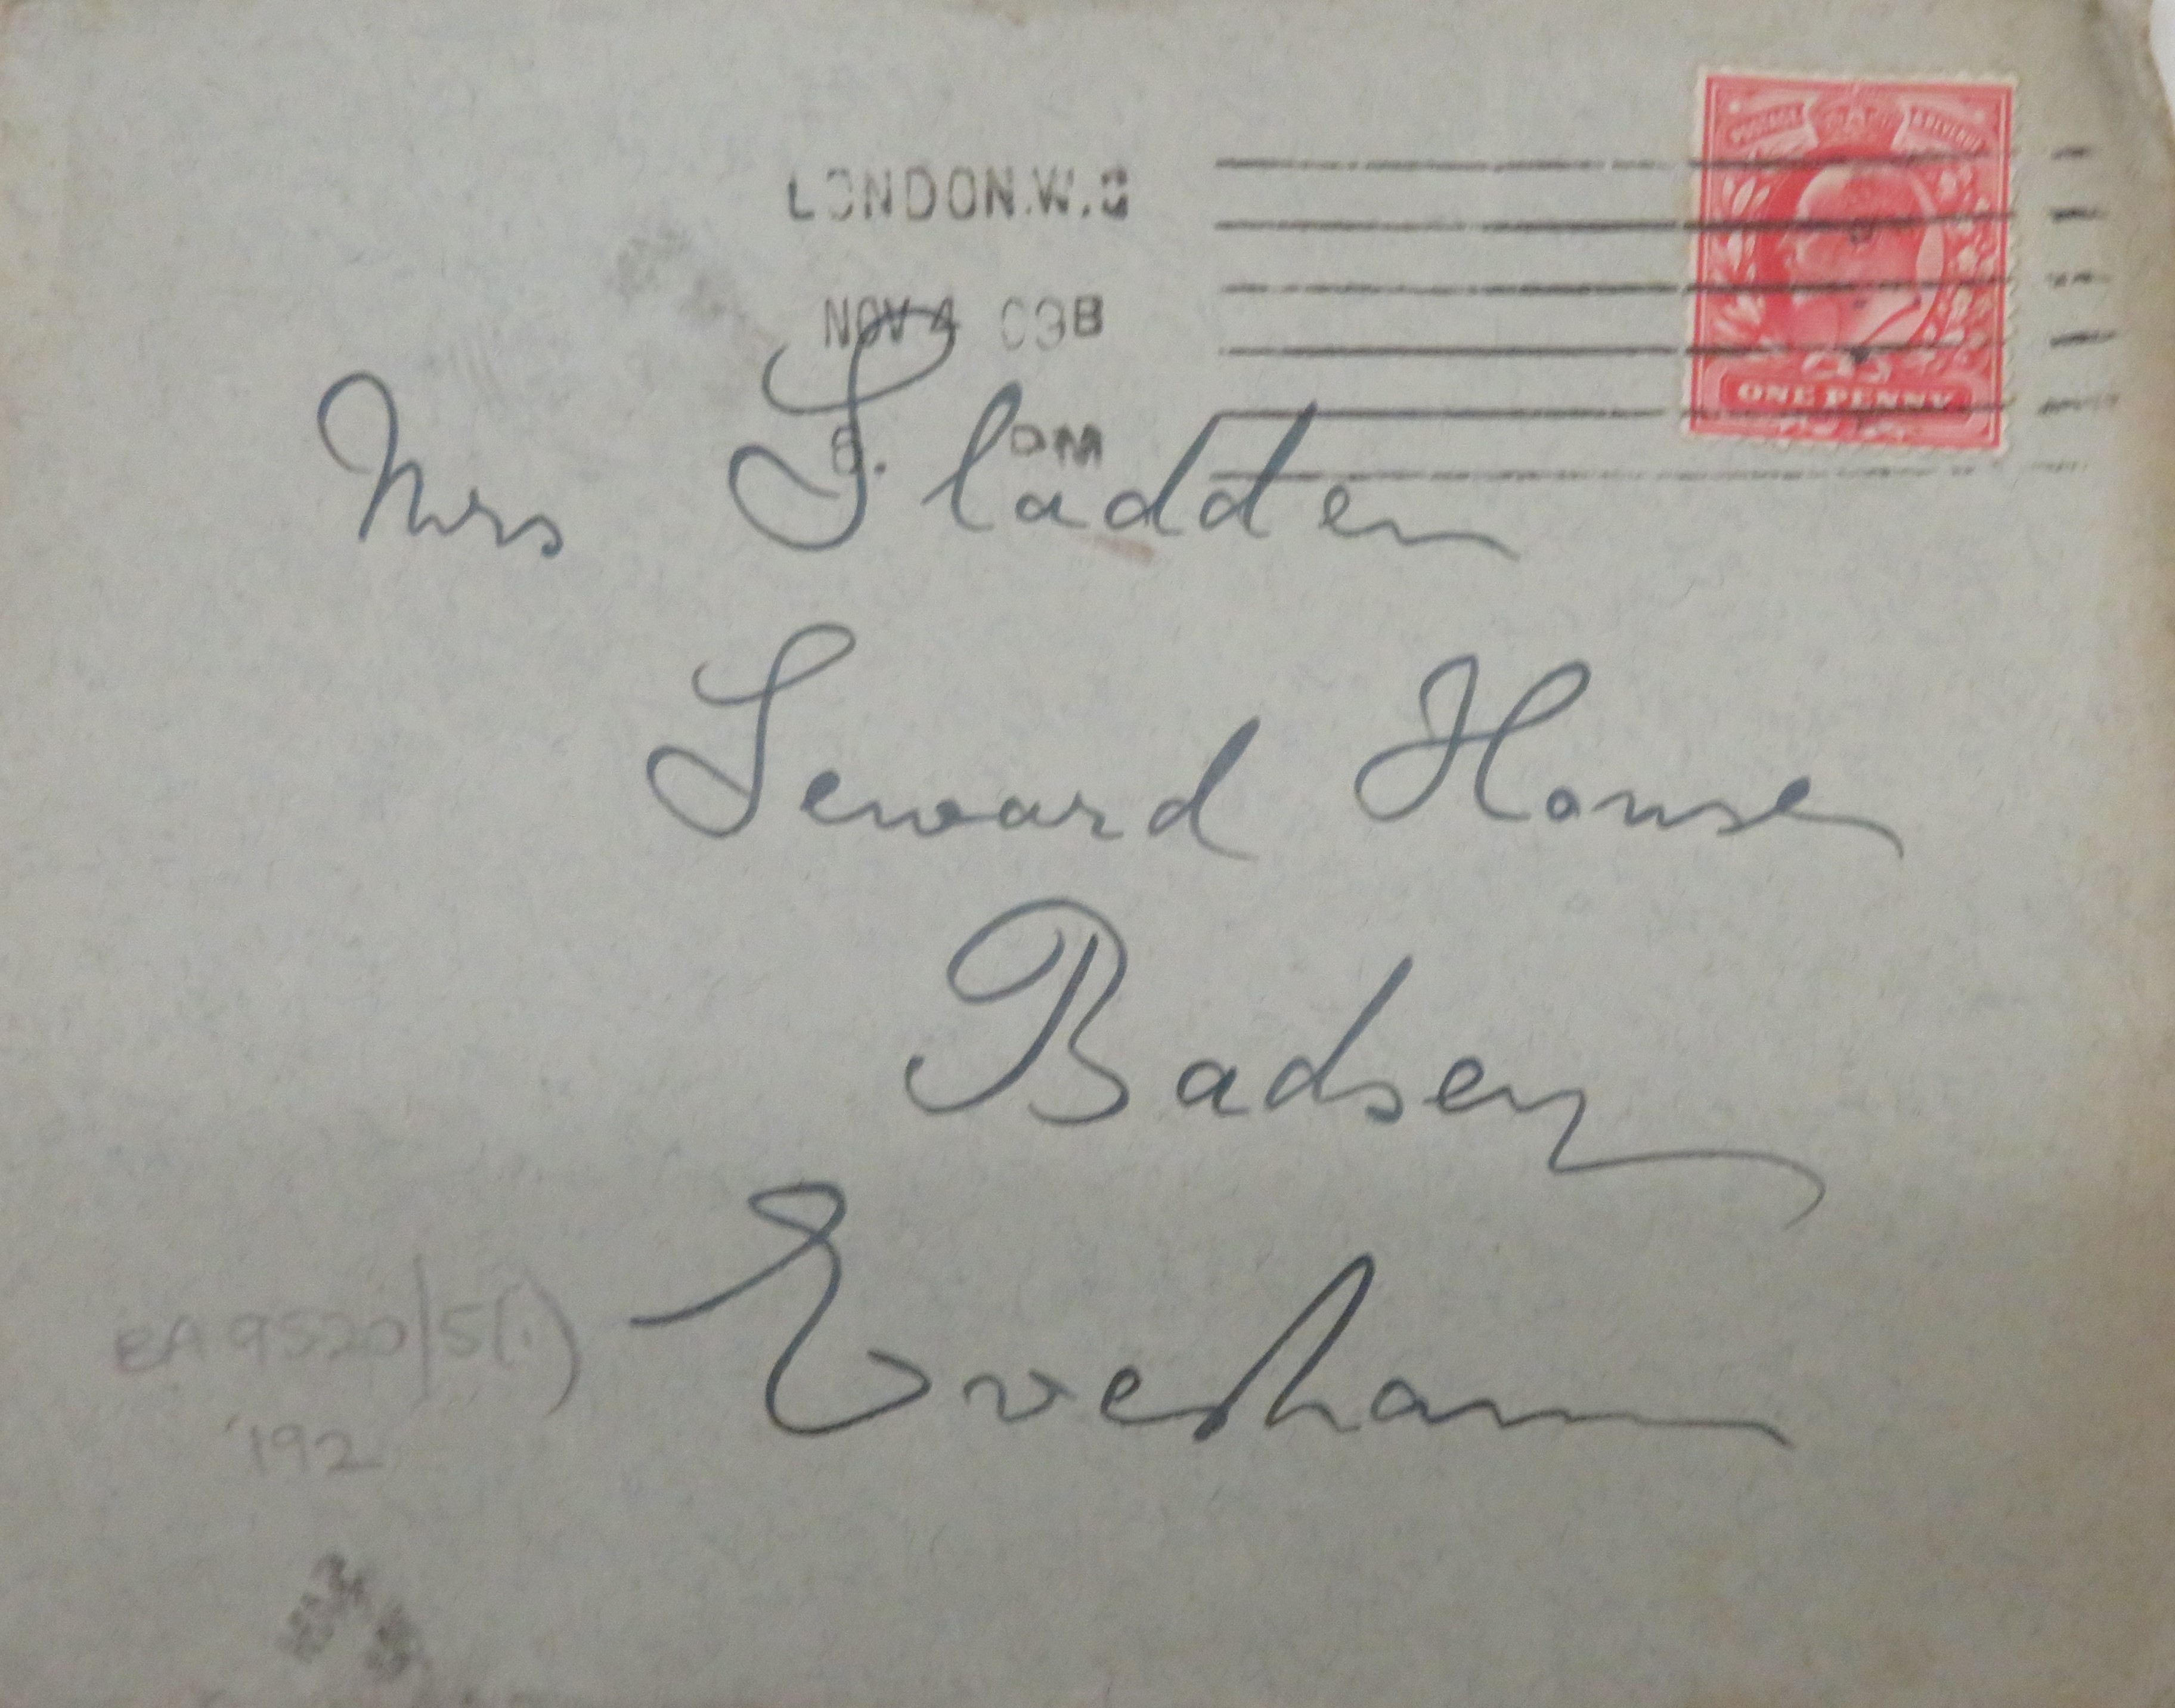 LONDON.W.C
NOV 4 09B
6. PM
POSTAGE & REVENUE
ONE PENNY
Mrs Sladden
Seward House
Badsey
Evesham
EA 9520/5(1)
192